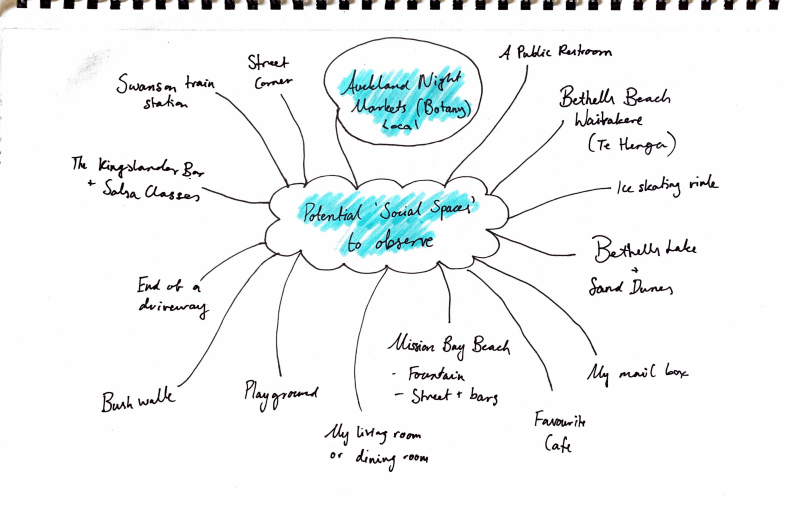 Potential 'Social Spaces'
to observe
Auckland Night
Markets (Botany)
Local
A Public Restroom
Bethells Beach
Waitakere
(Te Henga)
Ice skating rink
Bethells Lake
+
Sand Dunes
My mail box
Favourite
Cafe
Mission Bay Beach
- Fountain
- Street + bars
My living room
or dining room
Playground
Bush walk
End of a
driveway
The Kingslander Bar
+ Salsa Classes
Swanson train
station
Street
Corner